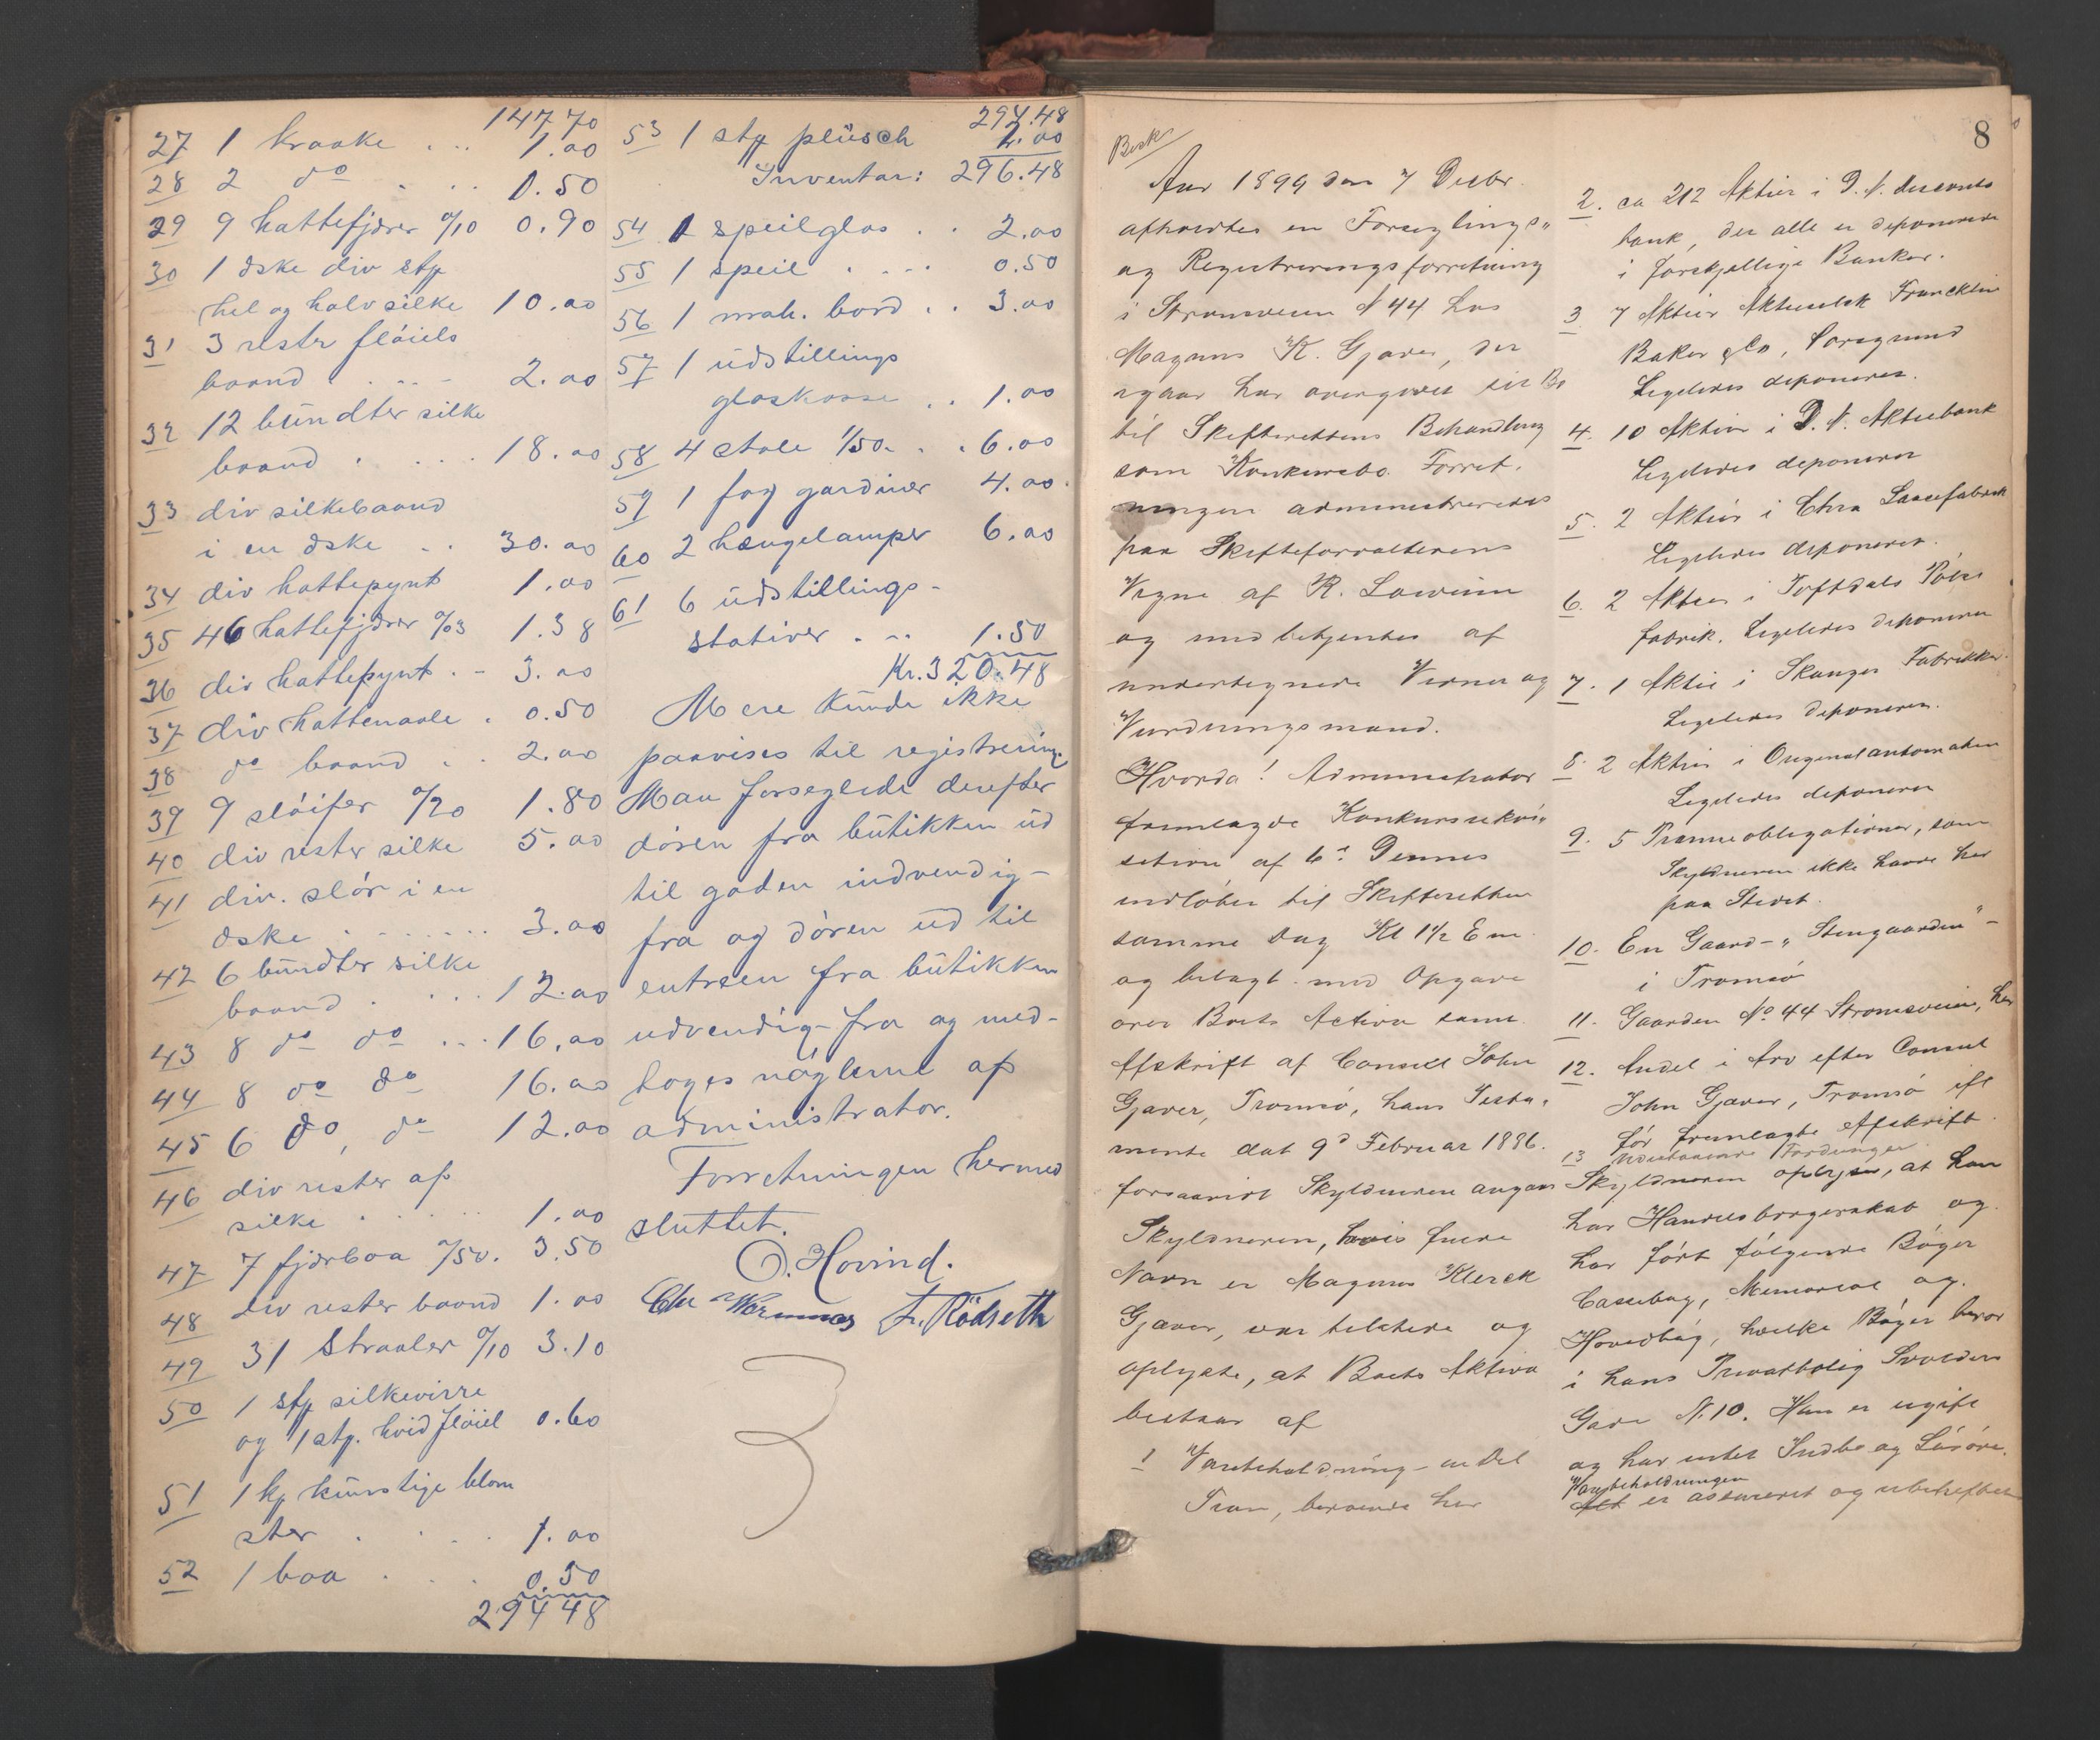 147.70
27 1 kraake . .. 1.00
28 2 do . . .. 0.50
29 9 hattefjærer 0/10 0.90
30 1 æske div stp
hel og halvsilke 10.00
31 3 rester fløiels
baand . . .. - 2.00
32 12 bündter silke
baand . . ... 18.00
33 div silkebaand
i en æske .. 30.00
34 div hattepynt 1.00
35 46 hattefjærer 0/03 1.38
36 div hattepynt . - 3.00
37 div hattenaale . 0.50
38 do baand . . 2.00
39 9 sløifer 0/20 1.80
40 div rester silke 5.00
41 div. slør i en
æske . . . . . . 3.00
42 6 bündter silke
baand . . ... 12.00
43 8 do do ... 16.00
44 8 do do 16.00
45 6 do, do 12.00
46 div rester af
silke . . . . . 1.00
47 7 fjærboa 0/50. 3.50
48 div rester baand 1.00
49 31 Straaler 0/10 3.10
50 1 stp silkevirre
og 1 stp. hvid fløiel 0.60
51 1 kp künstige blom
ster . . . 1.00
52 1 boa . . . 0.50
294 48
294.48
53 1 stp plüsch 2.00
Inventar: 296.48
54 1 speilglas . . 2.00
55 1 speil . . .. 0.50
56 1 mah. bord . . 3.00
57 1 üdstillings
glaskasse . . 1.00
58 4 stole 1/50. . . 6.00
59 1 fag gardiner 4.00.
60 2 hængelamper 6.00
61 6 üdstillings-
stativer . .. 1.50
Kr. 320.48
Mere künde ikke
paavises til registrering.
Man forseglede derefter
døren fra bütikken üd
til gaden indvendig-
fra og døren üd til
entreen fra bütikken
udvendig-fra og med-
toges nøglerne af
administrator.
Forretningen hermed
sluttet.
O. Hovind.
Chr Wermnes Fr. Rödseth
3
8
Besk
Aar 1899 den 7 Decbr.
afholdtes en Forseglings„
og Registreringsforretning
i Strømsveien N 44 hos
Magnus K. Gjæver, der
igaar har overgivet sit Bo
til Skifterettens Behandling
som Konkursbo. Forret„
ningen administreredes
paa Skifteforvalterens
Vegne af R. Lowum
og med betjentes af
undertegnede Vidner og
Vurdringsmænd.
Hvorda! Administrator
fremlagde Konkursrekvi„
sition af 6te Dennes
indløbet til Skifteretten
samme Dag Kl 1 1/2 Em.
og belagt med Opgave
over Boets Activa samt
Afskrift af Consul John
Gjæver, Tromsø, hans Testa„
mente dat 9d Februar 1886.
forsaavidt Skyldneren angaar
Skyldneren, hvis fulde
Navn er Magnus Klerck
Gjæver, var tilstede og
oplyste, at Boets Aktiva
bestaar af
1 Varebeholdning - en Del
Tran, beroende her
2. ca 212 Aktier i D. N. Disconto
bank, der alle er deponerede
i forskjellige Banker.
3 7 Aktier Aktieselsk Francklin
Baker & Co, Porsgrund
Ligeledes deponeret.
4. 10 Aktier i D. N. Aktiebank
Ligeledes deponeret
5. 2 Aktier i Chra Laasefabrik
Ligeledes deponeret.
6. 2 Aktier i Toftdals Pølse
fabrik. Ligeledes deponeret
7. 1 Aktie i Skauger Fabrikker.
Ligeledes deponeret.
8. 2 Aktier i Originalautomaten
Ligeledes deponeret
9. 5 Præmieobligationer, som
Skyldneren ikke havde her
paa Stedet.
10. En Gaard - „Stengaarden" -
i Tromsø
11. Gaarden No 44 Strømsveien, her
12. Andel i Arv efter Consul
John Gjæver, Tromsø ifl
før fremlagte Afskrift.
13 Udestaaende Fordringer
Skyldneren oplyser, at han
har Handelsborgerskab og
har ført følgende Bøger
Cassebog, Memorial og
Hovedbog, hvilke Bøger beror
i hans Privatbolig Svolders
Gade N. 10. Han er ugift
og har intet Indbo og Løsøre.
Varebeholdningen
Alt er assureret og ubeheftet